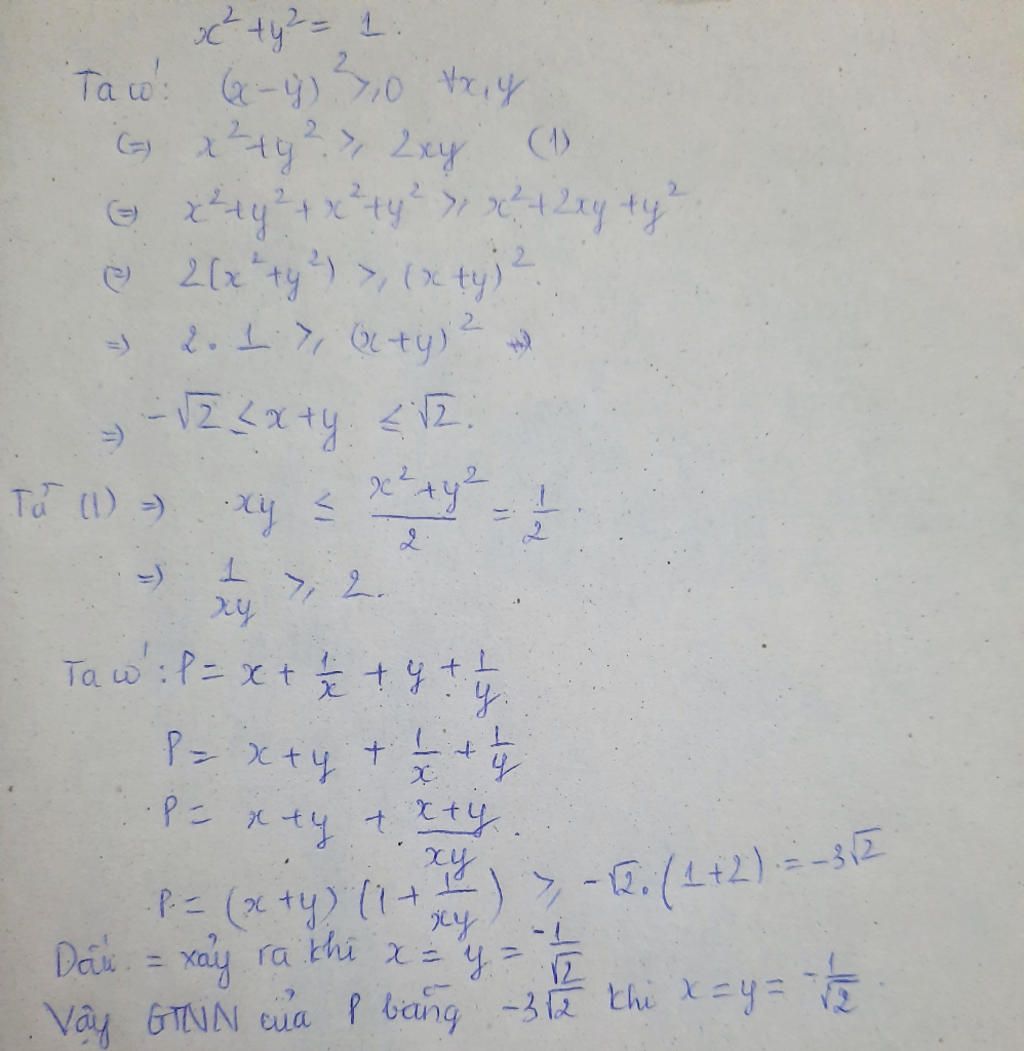 x² + y² = 1.
Ta có: (x - y)² ≥ 0 ∀x, y
(=) x² + y² ≥ 2xy (1)
(=) x² + y² + x² + y² ≥ x² + 2xy + y²
(=) 2(x² + y²) ≥ (x + y)².
=) 2.1 ≥ (x + y)²
=) -√2 ≤ x + y ≤ √2.
Từ (1) =) xy ≤ (x² + y²)/2 = 1/2.
=) 1/xy ≥ 2.
Ta có: P = x + 1/x + y + 1/y
P = x + y + 1/x + 1/y
P = x + y + (x + y)/xy.
P = (x + y)(1 + 1/xy) ≥ -√2.(1 + 2) = -3√2
Dấu = xảy ra khi x = y = -1/√2
Vậy GTNN của P bằng -3√2 khi x = y = -1/√2.